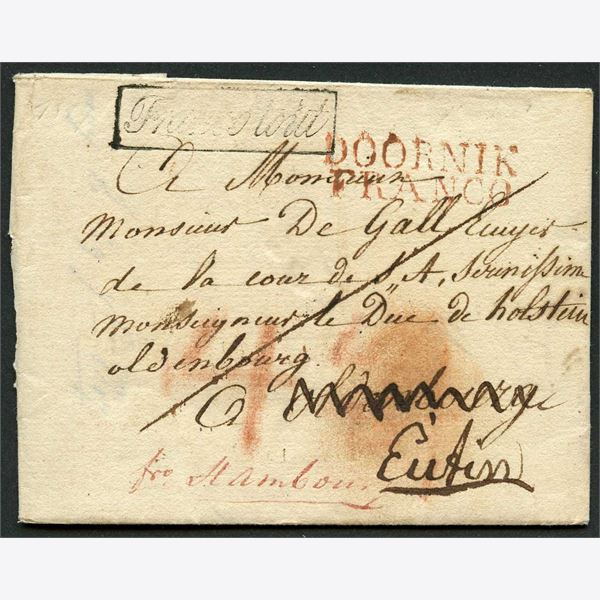 DOORNIK
FRANCO
A Monsieur
Monsieur De Gall Ecuyer
de la cour de S, A, Serenissime
Monseigneur le Duc de holstein
oldenbourg
A oldenbourg
Eutin
fro Hambourg